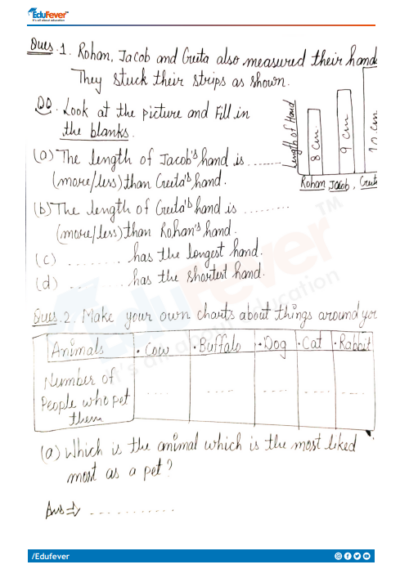 EduFever
Ques.1. Rohan, Jacob and Geeta also measured their hand
They stuck their strips as shown.
Q. Look at the picture and Fill in
the blanks.
Length of Hand
8 cm
9 cm
10 cm
Rohan Jacob, Geeta
(a) The length of Jacob's hand is .......
(more/less) than Geeta's hand.
(b) The length of Geeta's hand is ........
(more/less) than Rohan's hand.
(c) ......... has the longest hand.
(d) ......... has the shortest hand.
Ques.2. Make your own charts about things around yo
Animals • Cow • Buffalo • Dog • Cat • Rabbit
Number of
People who pet
them
(a) Which is the animal which is the most liked
most as a pet?
Ans → ...........
/Edufever